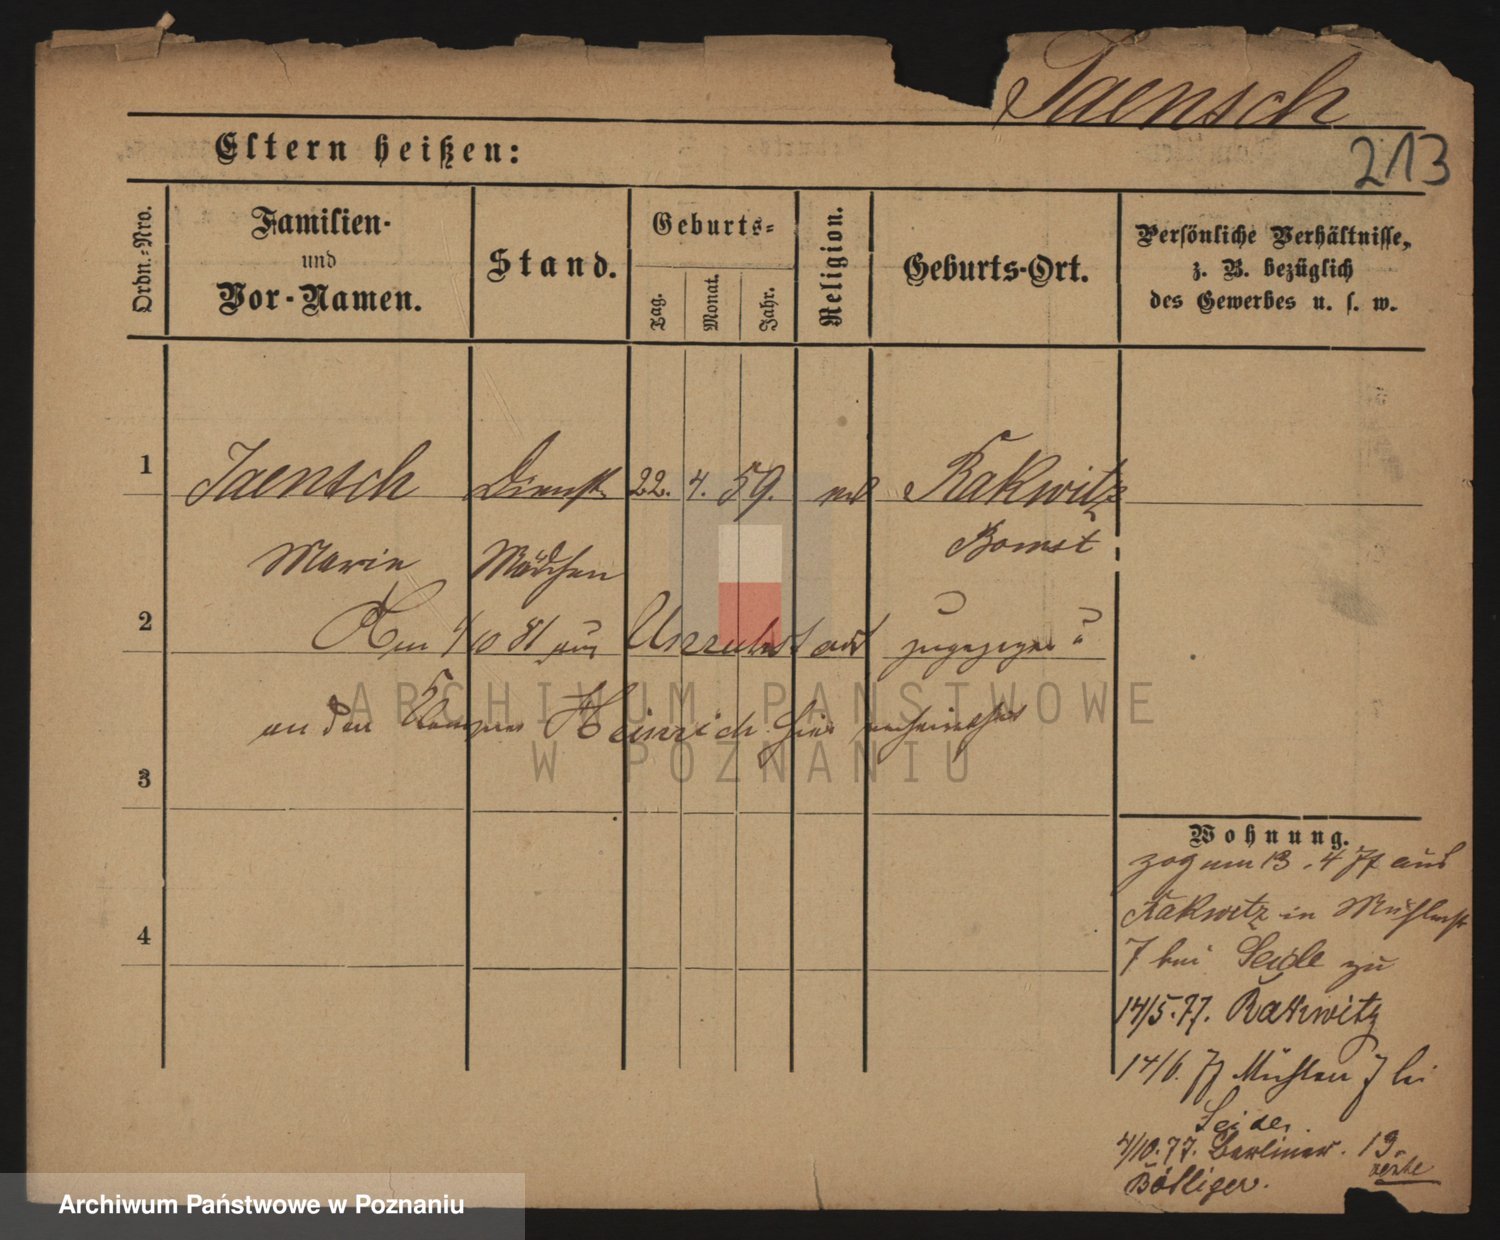 Jaensch
213
Eltern heißen:
Ordn.-Nro.
Familien-
und
Vor-Namen.
Stand.
Geburts-
Tag.
Monat.
Jahr.
Religion.
Geburts-Ort.
Persönliche Verhältnisse,
z. B. bezüglich
des Gewerbes u. s. w.
1 Jaensch Dienst 22. 4. 59. Rakwitz
Marie Mädchen Bomst
2 Am 4/10 81 aus Unruhstadt zugezogen
an den Heinrich hier verheirathet
ARCHIWUM PAŃSTWOWE
W POZNANIU
3
4
Wohnung.
zog am 13. 4 77 aus
Rakwitz in Mühlenstr
7 bei Seidle zu
14/5.77. Rakwitz
14/6. 77 Mühlen 7 bei
Seidel.
4/10.77. Berliner. 19.
Bötliger.
Archiwum Państwowe w Poznaniu